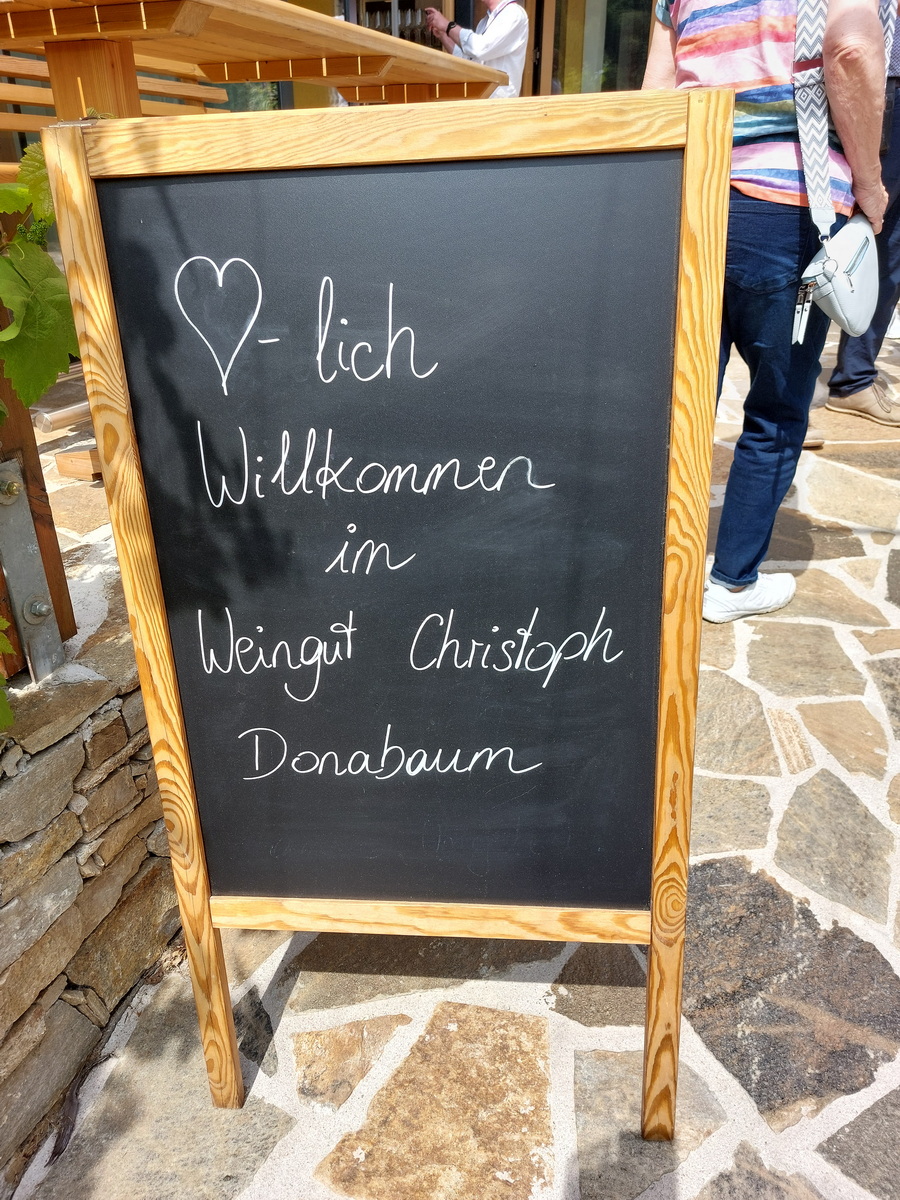 ♡-lich
Willkommen
im
Weingut Christoph
Donabaum